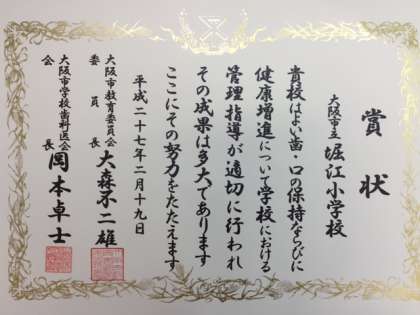 賞状
大阪市立 堀江小学校
貴校はよい歯・口の保持ならびに
健康増進について学校における
管理指導が適切に行われ
その成果は多大であります
ここにその努力をたたえます
平成二十七年二月十九日
大阪市教育委員会
委員長 大森不二雄
大阪市学校歯科医会
会長 岡本卓士